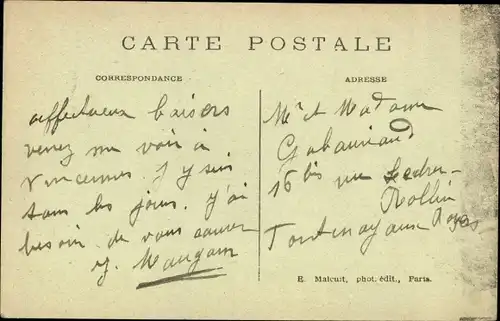 CARTE POSTALE
CORRESPONDANCE
ADRESSE
affectueux baisers
venez me voir à
Vincennes. J'y suis
tous les jours. J'ai
besoin de vous
Mr et Madame
16 bis rue Ledru-
Rollin
Fontenay aux Roses
E. Malcuit, phot. édit., Paris.